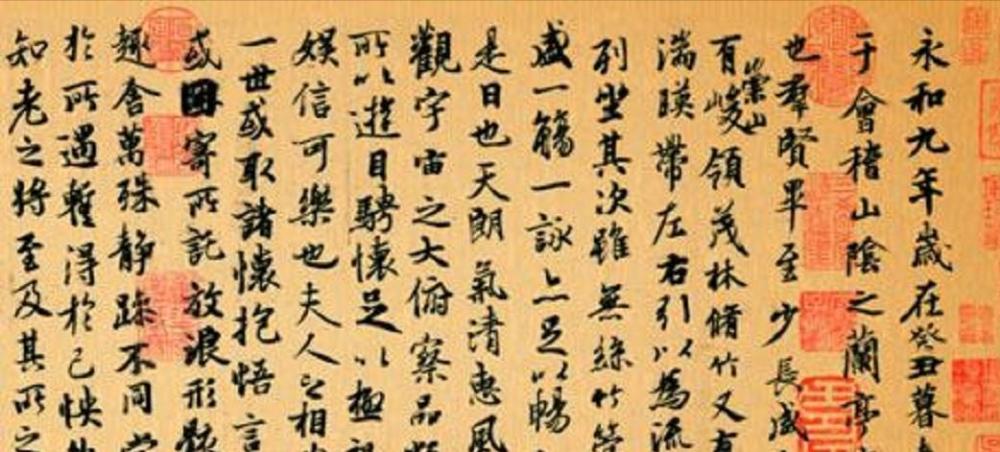 永和九年歲在癸丑暮
于會稽山陰之蘭亭
也羣賢畢至少長咸
有崇山峻領茂林脩竹又有
湍暎帶左右引以為流
列坐其次雖無絲竹管
盛一觴一詠亦足以暢
是日也天朗氣清惠風
觀宇宙之大俯察品類
所以遊目騁懷足以極
娛信可樂也夫人之相
一世或取諸懷抱悟言
或因寄所託放浪形骸
趣舍萬殊靜躁不同當
於所遇暫得於己怏
知老之將至及其所之